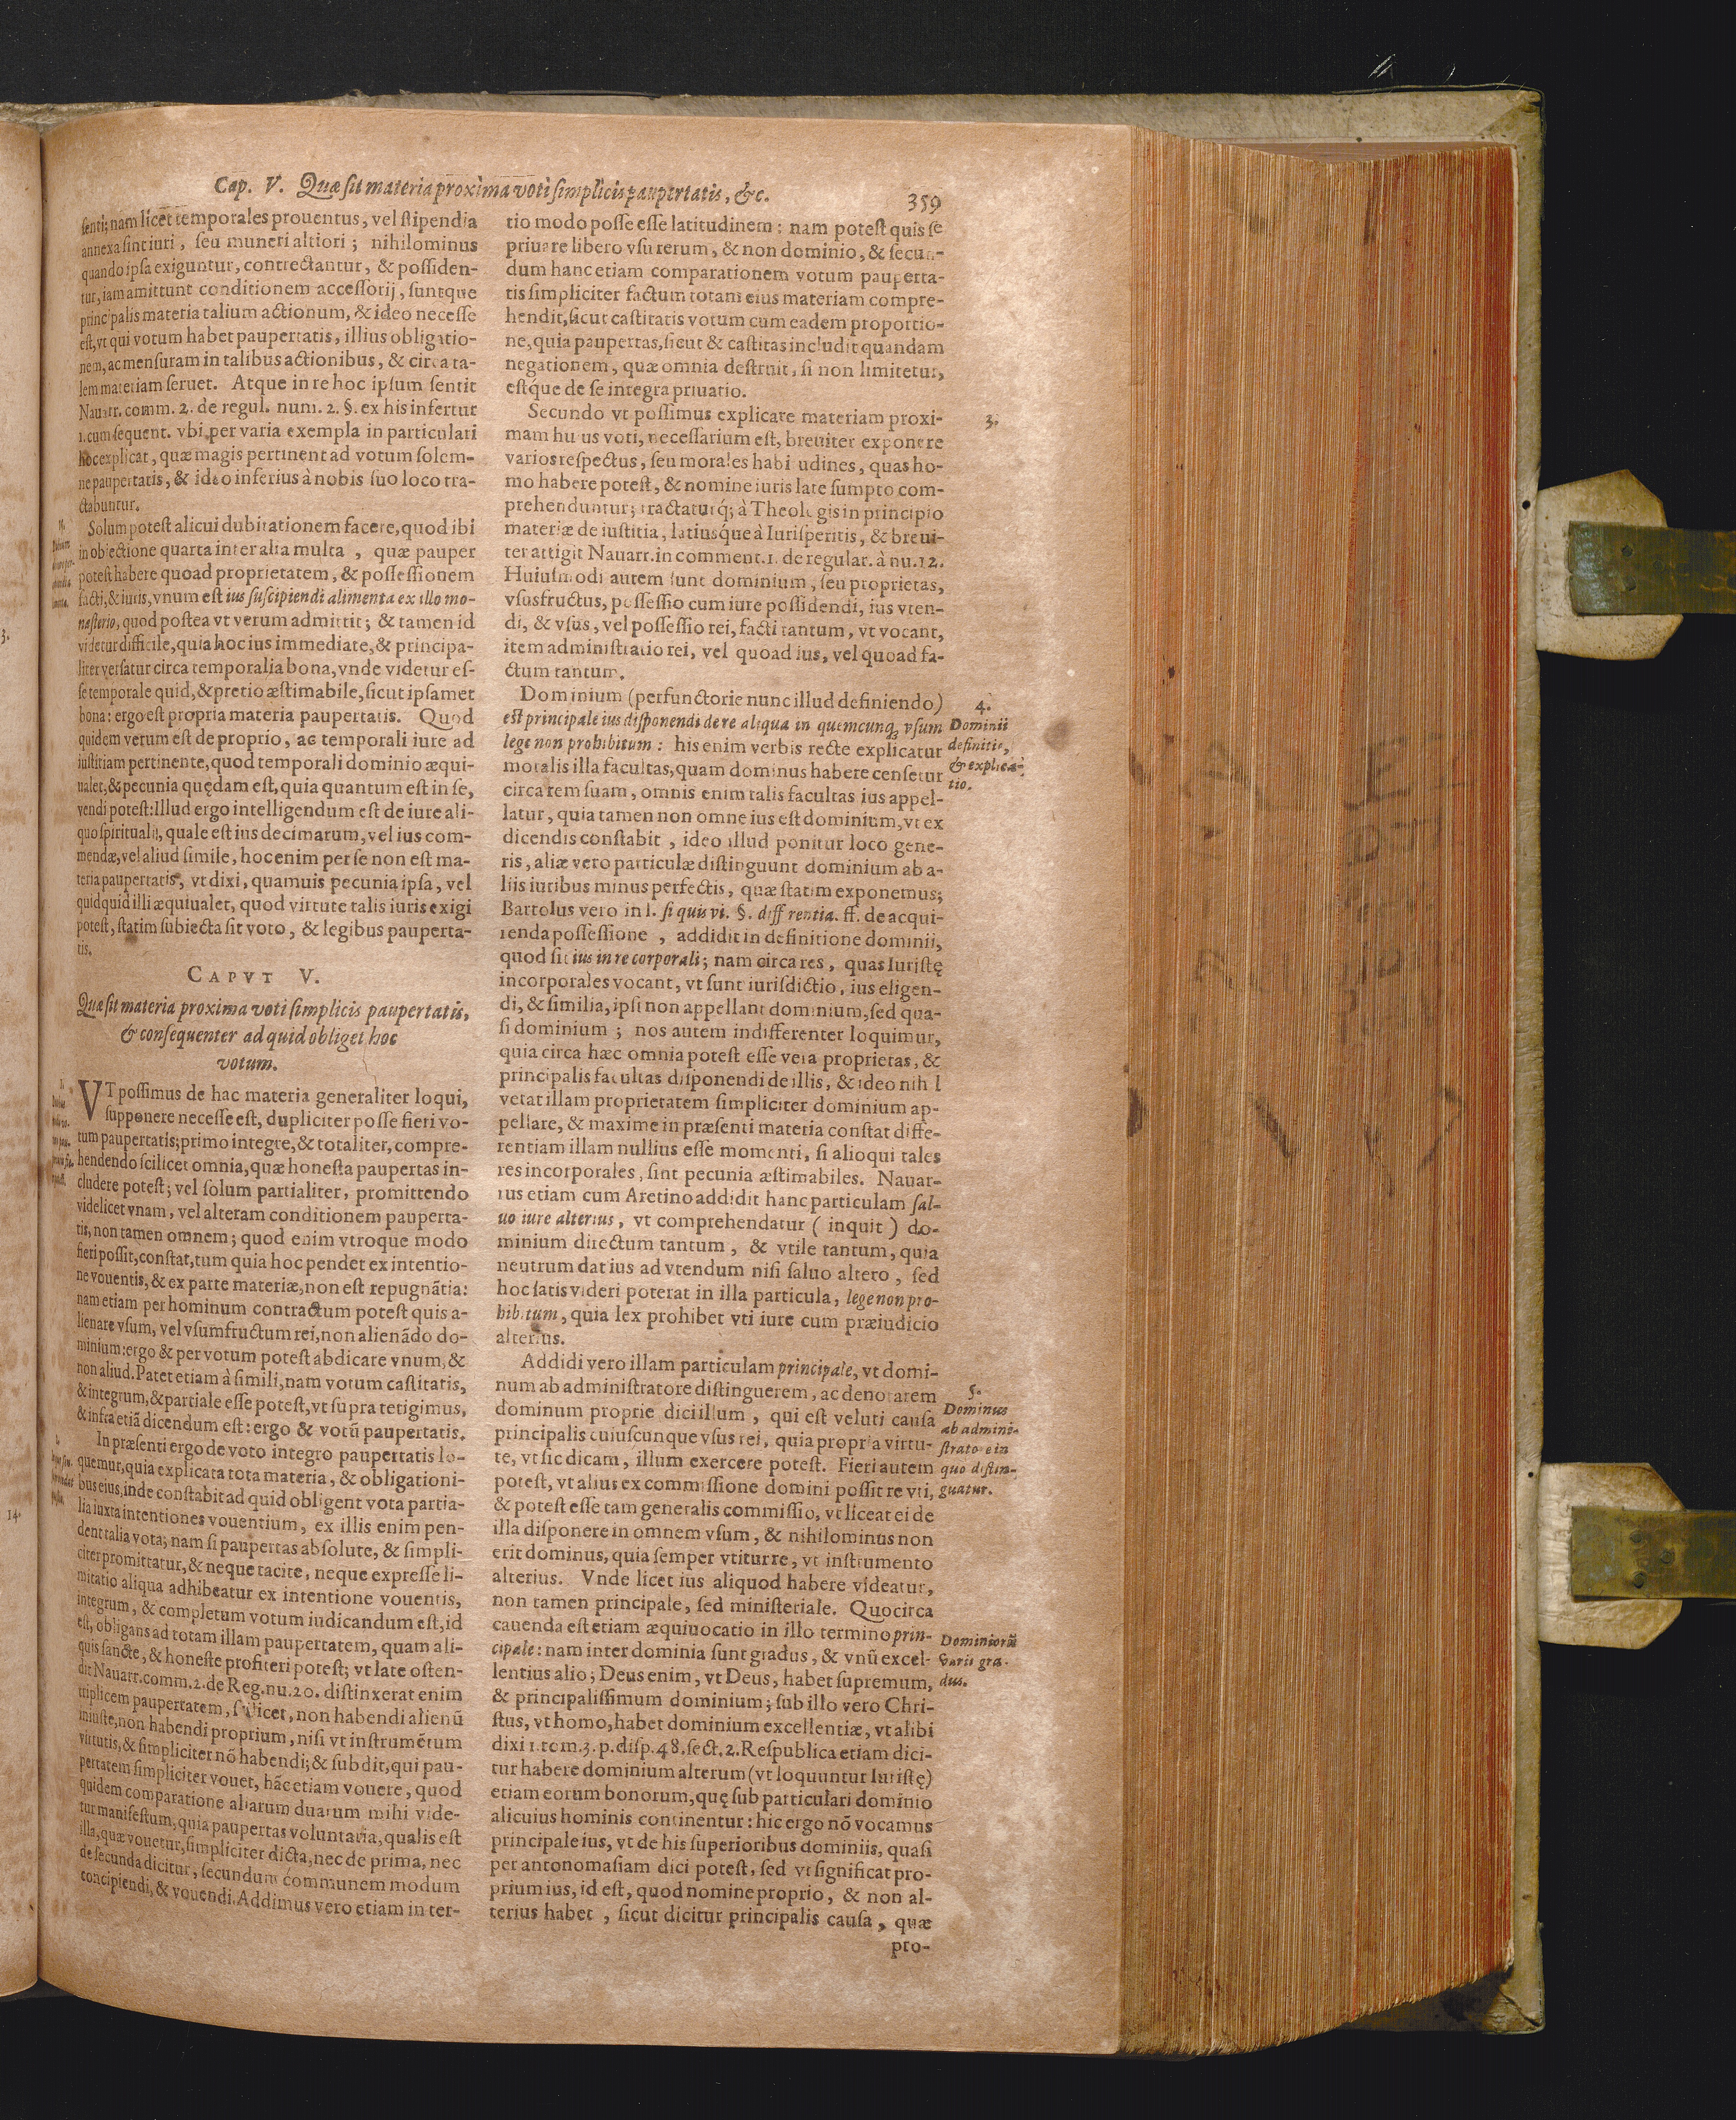 Cap. V. Quæ sit materia proxima voti simplicis paupertatis, &c.
359
senti; nam licet temporales prouentus, vel stipendia
annexa sint iuri, seu muneri altiori; nihilominus
quando ipsa exiguntur, contrectantur, & possiden-
tur, iam amittunt conditionem accessorij, suntque
principalis materia talium actionum, & ideo necesse
est, vt qui votum habet paupertatis, illius obligatio-
nem, ac mensuram in talibus actionibus, & circa ta-
lem materiam seruet. Atque in re hoc ipsum sentit
Nauarr. comm. 2. de regul. num. 2. §. ex his infertur
1. cum sequent. vbi per varia exempla in particulari
hoc explicat, quæ magis pertinent ad votum solem-
ne paupertatis, & ideo inferius à nobis suo loco tra-
ctabuntur.
Solum potest alicui dubitationem facere, quod ibi
in obiectione quarta inter alia multa, quæ pauper
potest habere quoad proprietatem, & possessionem
facti, & iuris, vnum est ius suscipiendi alimenta ex illo mo-
nasterio, quod postea vt verum admittit; & tamen id
videtur difficile, quia hoc ius immediate, & principa-
liter versatur circa temporalia bona, vnde videtur es-
se temporale quid, & pretio æstimabile, sicut ipsamet
bona: ergo est propria materia paupertatis. Quod
quidem verum est de proprio, ac temporali iure ad
iustitiam pertinente, quod temporali dominio æqui-
ualet, & pecunia quędam est, quia quantum est in se,
vendi potest: Illud ergo intelligendum est de iure ali-
quo spirituali, quale est ius decimarum, vel ius com-
mendæ, vel aliud simile, hoc enim per se non est ma-
teria paupertatis, vt dixi, quamuis pecunia ipsa, vel
quidquid illi æquiualet, quod virtute talis iuris exigi
potest, statim subiecta sit voto, & legibus pauperta-
tis.
CAPVT V.
Quæ sit materia proxima voti simplicis paupertatis,
& consequenter ad quid obliget hoc
votum.
VT possimus de hac materia generaliter loqui,
supponere necesse est, dupliciter posse fieri vo-
tum paupertatis; primo integre, & totaliter, compre-
hendendo scilicet omnia, quæ honesta paupertas in-
cludere potest; vel solum partialiter, promittendo
videlicet vnam, vel alteram conditionem pauperta-
tis, non tamen omnem; quod enim vtroque modo
fieri possit, constat, tum quia hoc pendet ex intentio-
ne vouentis, & ex parte materiæ, non est repugnãtia:
nam etiam per hominum contractum potest quis a-
lienare vsum, vel vsumfructum rei, non alienãdo do-
minium: ergo & per votum potest abdicare vnum, &
non aliud. Patet etiam à simili, nam votum castitatis,
& integrum, & partiale esse potest, vt supra tetigimus,
& infra etiã dicendum est: ergo & votũ paupertatis.
In præsenti ergo de voto integro paupertatis lo-
quemur, quia explicata tota materia, & obligationi-
bus eius, inde constabit ad quid obligent vota partia-
lia iuxta intentiones vouentium, ex illis enim pen-
dent talia vota; nam si paupertas absolute, & simpli-
citer promittatur, & neque tacite, neque expresse li-
mitatio aliqua adhibeatur ex intentione vouentis,
integrum, & completum votum iudicandum est, id
est, obligans ad totam illam paupertatem, quam ali-
quis sancte, & honeste profiteri potest; vt late osten-
dit Nauarr. comm. 2. de Reg. nu. 20. distinxerat enim
triplicem paupertatem, scilicet, non habendi alienũ
iniuste, non habendi proprium, nisi vt instrumẽtum
virtutis, & simpliciter nõ habendi; & subdit, qui pau-
pertatem simpliciter vouet, hãc etiam vouere, quod
quidem comparatione aliarum duarum mihi vide-
tur manifestum, quia paupertas voluntaria, qualis est
illa, quæ vouetur, simpliciter dicta, nec de prima, nec
de secunda dicitur, secundum communem modum
concipiendi, & vouendi. Addimus vero etiam in ter-
tio modo posse esse latitudinem: nam potest quis se
priuare libero vsu rerum, & non dominio, & secun-
dum hanc etiam comparationem votum pauperta-
tis simpliciter factum totam eius materiam compre-
hendit, sicut castitatis votum cum eadem proportio-
ne, quia paupertas, sicut & castitas includit quandam
negationem, quæ omnia destruit, si non limitetur,
estque de se integra priuatio.
Secundo vt possimus explicare materiam proxi-
mam huius voti, necessarium est, breuiter exponere
varios respectus, seu morales habitudines, quas ho-
mo habere potest, & nomine iuris late sumpto com-
prehenduntur; tractaturq́; à Theologis in principio
materiæ de iustitia, latiusque à Iurisperitis, & breui-
ter attigit Nauarr. in comment. 1. de regular. à nu. 12.
Huiusmodi autem sunt dominium, seu proprietas,
vsusfructus, possessio cum iure possidendi, ius vten-
di, & vsus, vel possessio rei, facti tantum, vt vocant,
item administratio rei, vel quoad ius, vel quoad fa-
ctum tantum.
Dominium (perfunctorie nunc illud definiendo)
est principale ius disponendi de re aliqua in quemcunq; vsum
lege non prohibitum: his enim verbis recte explicatur
moralis illa facultas, quam dominus habere censetur
circa rem suam, omnis enim talis facultas ius appel-
latur, quia tamen non omne ius est dominium, vt ex
dicendis constabit, ideo illud ponitur loco gene-
ris, aliæ vero particulæ distinguunt dominium ab a-
liis iuribus minus perfectis, quæ statim exponemus;
Bartolus vero in l. si quis vi. §. differentia. ff. de acqui-
renda possessione, addidit in definitione dominii,
quod sit ius in re corporali; nam circa res, quas Iuristę
incorporales vocant, vt sunt iurisdictio, ius eligen-
di, & similia, ipsi non appellant dominium, sed qua-
si dominium; nos autem indifferenter loquimur,
quia circa hæc omnia potest esse vera proprietas, &
principalis facultas disponendi de illis, & ideo nihil
vetat illam proprietatem simpliciter dominium ap-
pellare, & maxime in præsenti materia constat diffe-
rentiam illam nullius esse momenti, si alioqui tales
res incorporales, sint pecunia æstimabiles. Nauar-
rus etiam cum Aretino addidit hanc particulam sal-
uo iure alterius, vt comprehendatur (inquit) do-
minium directum tantum, & vtile tantum, quia
neutrum dat ius ad vtendum nisi saluo altero, sed
hoc satis videri poterat in illa particula, lege non pro-
hibitum, quia lex prohibet vti iure cum præiudicio
alterius.
Addidi vero illam particulam principale, vt domi-
num ab administratore distinguerem, ac denotarem
dominum proprie dici illum, qui est veluti causa
principalis cuiuscunque vsus rei, quia propria virtu-
te, vt sic dicam, illum exercere potest. Fieri autem
potest, vt alius ex commissione domini possit re vti,
& potest esse tam generalis commissio, vt liceat ei de
illa disponere in omnem vsum, & nihilominus non
erit dominus, quia semper vtitur re, vt instrumento
alterius. Vnde licet ius aliquod habere videatur,
non tamen principale, sed ministeriale. Quocirca
cauenda est etiam æquiuocatio in illo termino prin-
cipale: nam inter dominia sunt gradus, & vnũ excel-
lentius alio; Deus enim, vt Deus, habet supremum,
& principalissimum dominium; sub illo vero Chri-
stus, vt homo, habet dominium excellentiæ, vt alibi
dixi 1. tom. 3. p. disp. 48. sect. 2. Respublica etiam dici-
tur habere dominium alterum (vt loquuntur Iuristę)
etiam eorum bonorum, quę sub particulari dominio
alicuius hominis continentur: hic ergo nõ vocamus
principale ius, vt de his superioribus dominiis, quasi
per antonomasiam dici potest, sed vt significat pro-
prium ius, id est, quod nomine proprio, & non al-
terius habet, sicut dicitur principalis causa, quæ
pro-
3.
4.
Dominii
definitio,
& explica-
tio.
5.
Dominus
ab admini-
stratore in
quo distin-
guatur.
Dominiorũ
varii gra-
dus.
14.